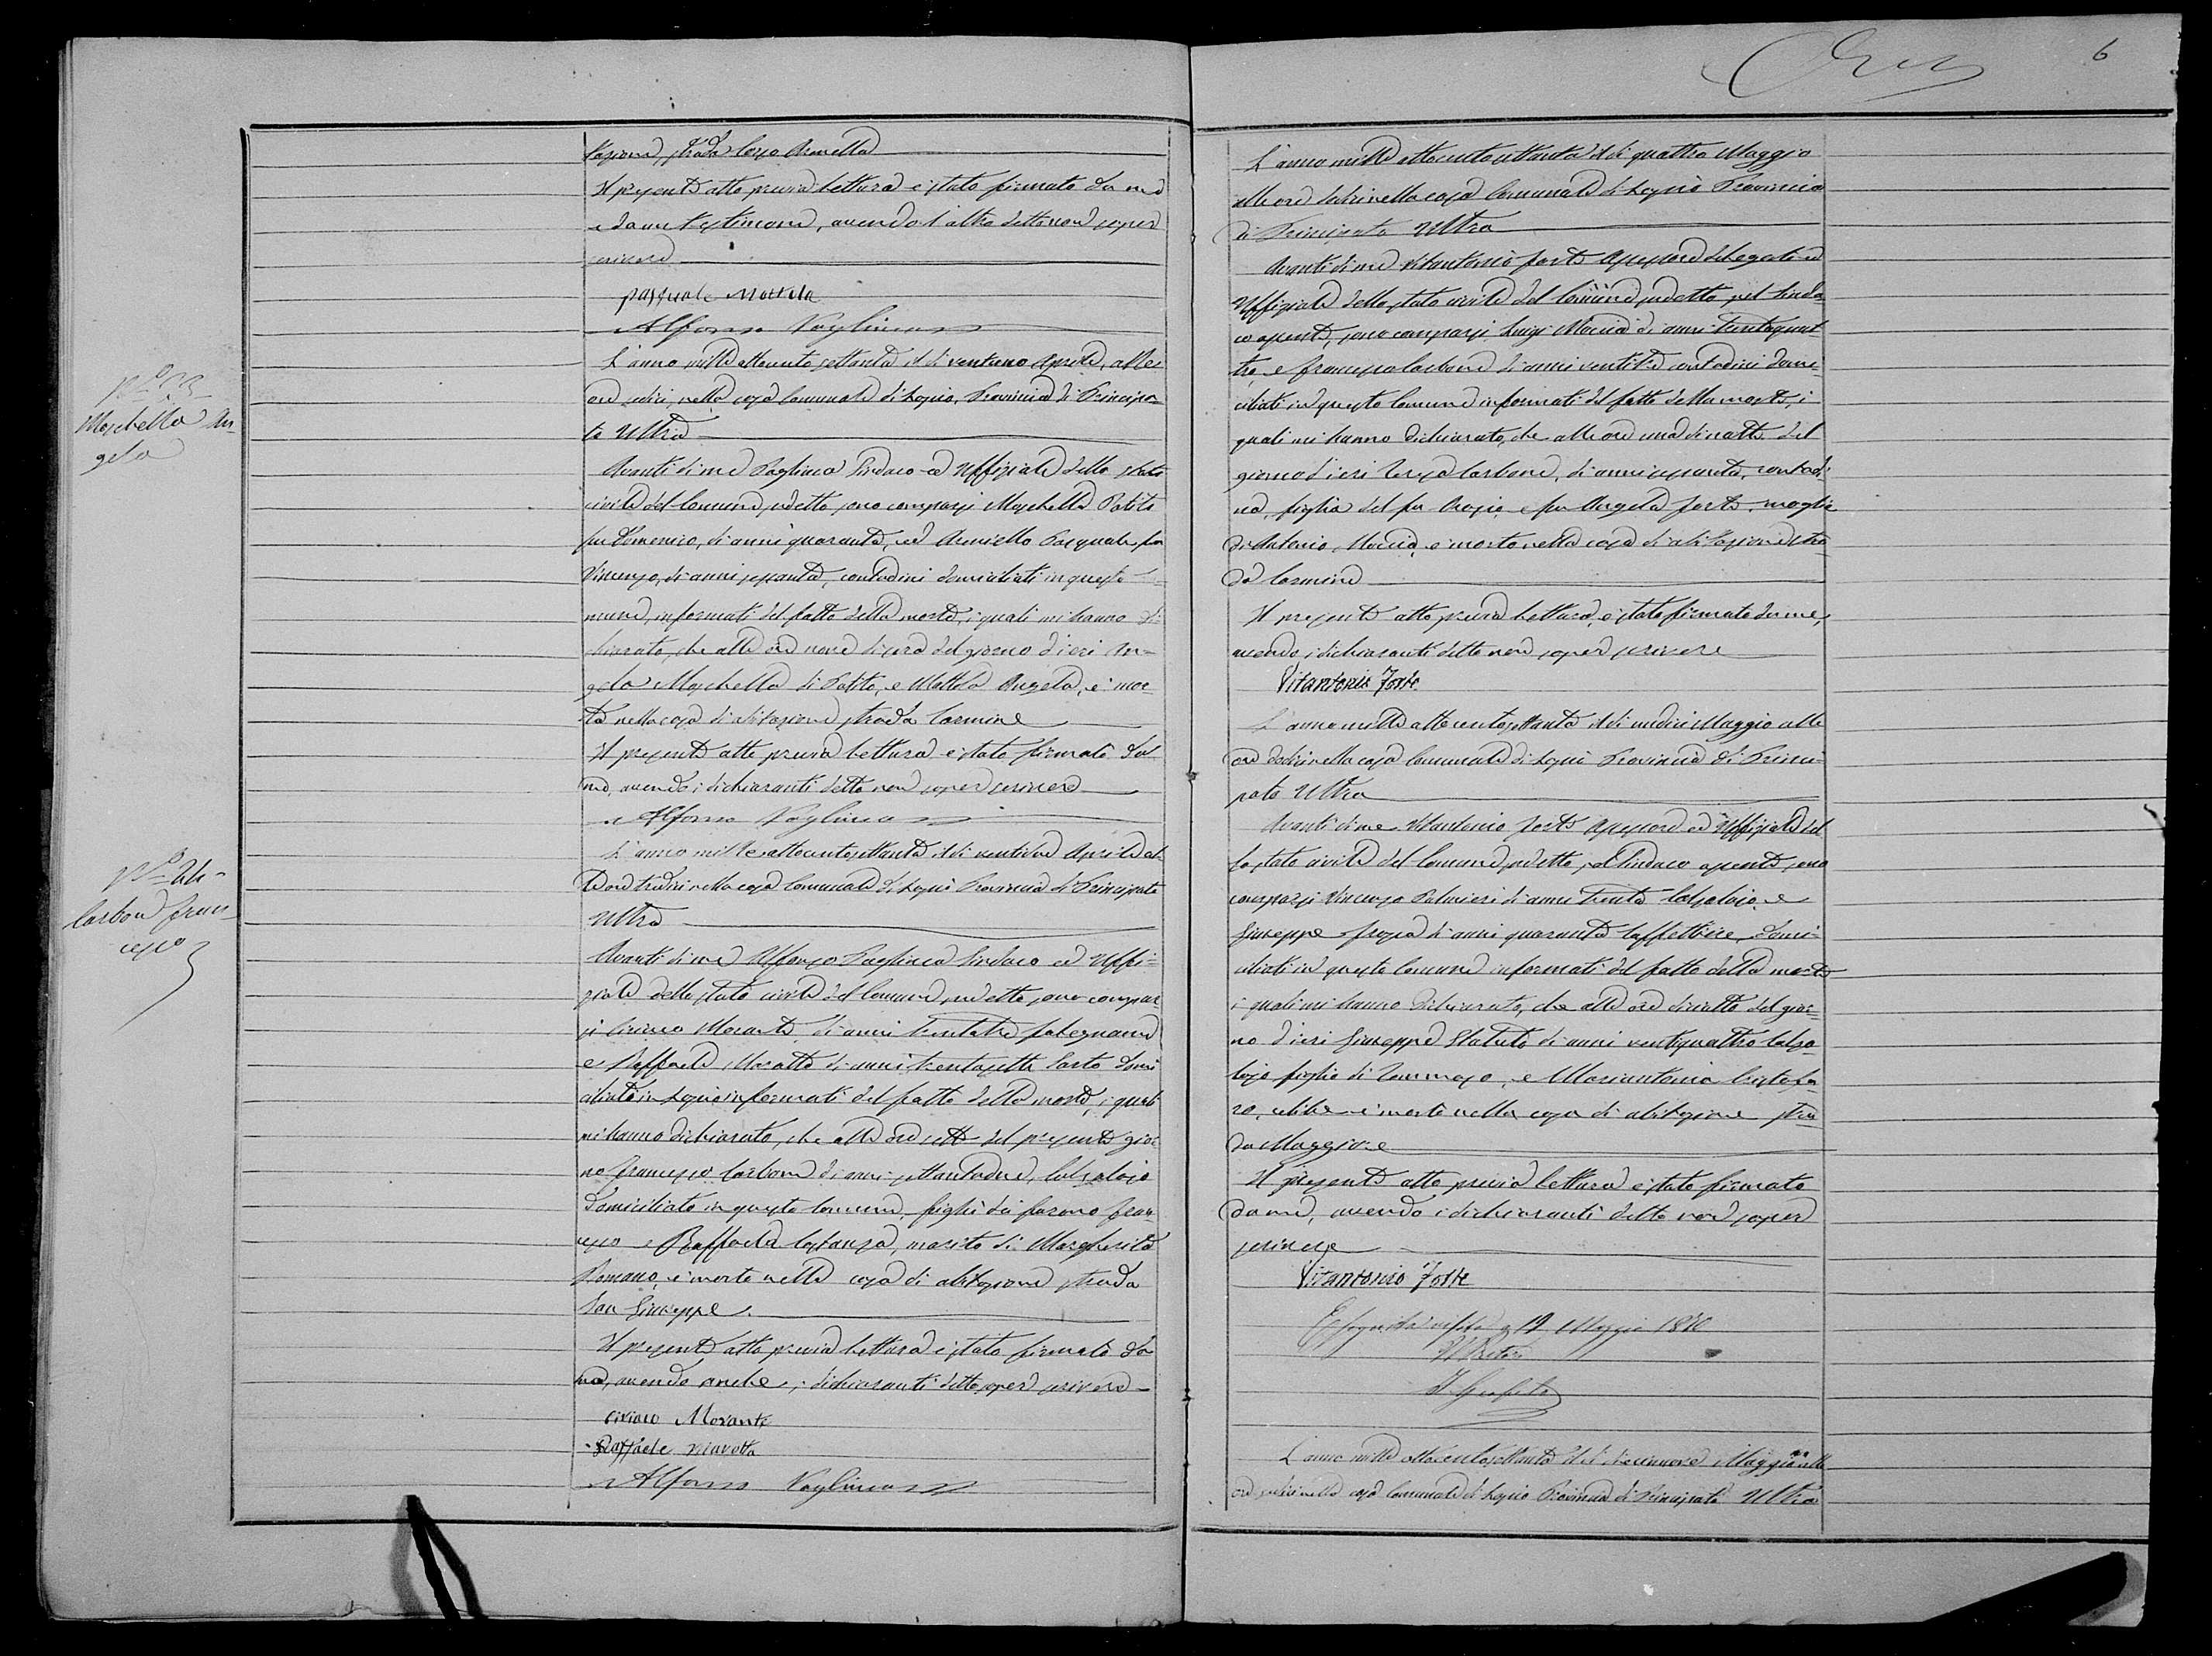 6
tazione, strada Corso Armella
Il presente atto previa lettura è stato firmato da me
e da un testimone, avendo l'altro detto non saper
scrivere
pasquale Mottola
Alfonso Pagliuca
N.º 23
Moschella An-
gela
L'anno mille ottocento settanta il dì ventuno Aprile, alle
ore sedici, nella casa Comunale di Lapio, Provincia di Principa-
to Ultra
Avanti di me Pagliuca Sindaco ed Uffiziale dello stato
civile del Comune suddetto, sono comparsi Moschella Potito
fu Domenico, di anni quaranta, ed Armiello Pasquale, fu
Vincenzo, di anni sessanta, contadini domiciliati in questo
mune, informati del fatto della morte, i quali mi hanno di
chiarato, che alle ore nove di sera del giorno d'ieri An-
gela Moschella di Potito, e Mottola Angela, è mor-
ta nella casa di abitazione strada Carmine
Il presente atto previa lettura è stato firmato da
me, avendo i dichiaranti detto non saper scrivere
Alfonso Pagliuca
N.º 24
Carbone Fran-
cesco
L'anno mille ottocento settanta il dì ventidue Aprile al-
le ore tredici nella casa Comunale di Lapio Provincia di Principato
Ultra
Avanti di me Alfonso Pagliuca Sindaco ed Uffi-
ziale dello stato civile del Comune suddetto, sono compar-
si Ciriaco Morante, di anni trentatre falegname
e Raffaele Marotta di anni trentasette Sarto domi
ciliati in Lapio informati del fatto della morte, i quali
mi hanno dichiarato, che alle ore sette del presente gior
no Francesco Carbone di anni settantadue, Calzolajo
domiciliato in questo Comune, figlio dei furono Fran-
cesco e Raffaela Costanza, marito di Margherita
Romano, è morto nella casa di abitazione strada
San Giuseppe
Il presente atto previa lettura è stato firmato da
me, avendo anche i dichiaranti detto saper scrivere
Ciriaco Morante
Raffaele Marotta
Alfonso Pagliuca
L'anno mille ottocento settanta il dì quattro Maggio
alle ore sedici nella casa Comunale di Lapio Provincia
di Principato Ultra
Avanti di me Vitantonio Forte Assessore delegato ed
Uffiziale dello stato civile del Comune suddetto pel Sinda-
co assente, sono comparsi Luigi Moccia di anni trentaquat-
tro e Francesco Carbone di anni ventitre contadini domi-
ciliati in questo Comune informati del fatto della morte, i
quali mi hanno dichiarato, che alle ore una di notte del
giorno d'ieri Teresa Carbone, di anni sessanta, contadi-
na, figlia del fu Biagio, e fu Angela Forte, moglie
di Antonio Moccia, è morta nella casa di abitazione stra
da Carmine
Il presente atto previa lettura, è stato firmato da me,
avendo i dichiaranti detto non saper scrivere
Vitantonio Forte
L'anno mille ottocento settanta il dì undici Maggio alle
ore dodici nella casa Comunale di Lapio Provincia di Princi-
pato Ultra
Avanti di me Vitantonio Forte Assessore ed Uffiziale del
lo stato civile del Comune suddetto, pel Sindaco assente, sono
comparsi Vincenzo Palmieri di anni trenta Calzolajo, e
Giuseppe di anni quaranta Caffettiere, domi-
ciliati in questo Comune informati del fatto della morte
i quali mi hanno dichiarato, che alle ore di notte del gior-
no d'ieri Giuseppe Statuto di anni ventiquattro Calzo-
lajo figlio di Tommaso, e Mariantonia
ro, celibe è morto nella casa di abitazione stra
da Maggiore
Il presente atto previa lettura è stato firmato
da me, avendo i dichiaranti detto non saper
scrivere
Vitantonio Forte
Eseguita visita a 19 Maggio 1870
Il Pretore
L'anno mille ottocento settanta il dì diecinnove Maggio alle
ore sedici nella casa Comunale di Lapio Provincia di Principato Ultra